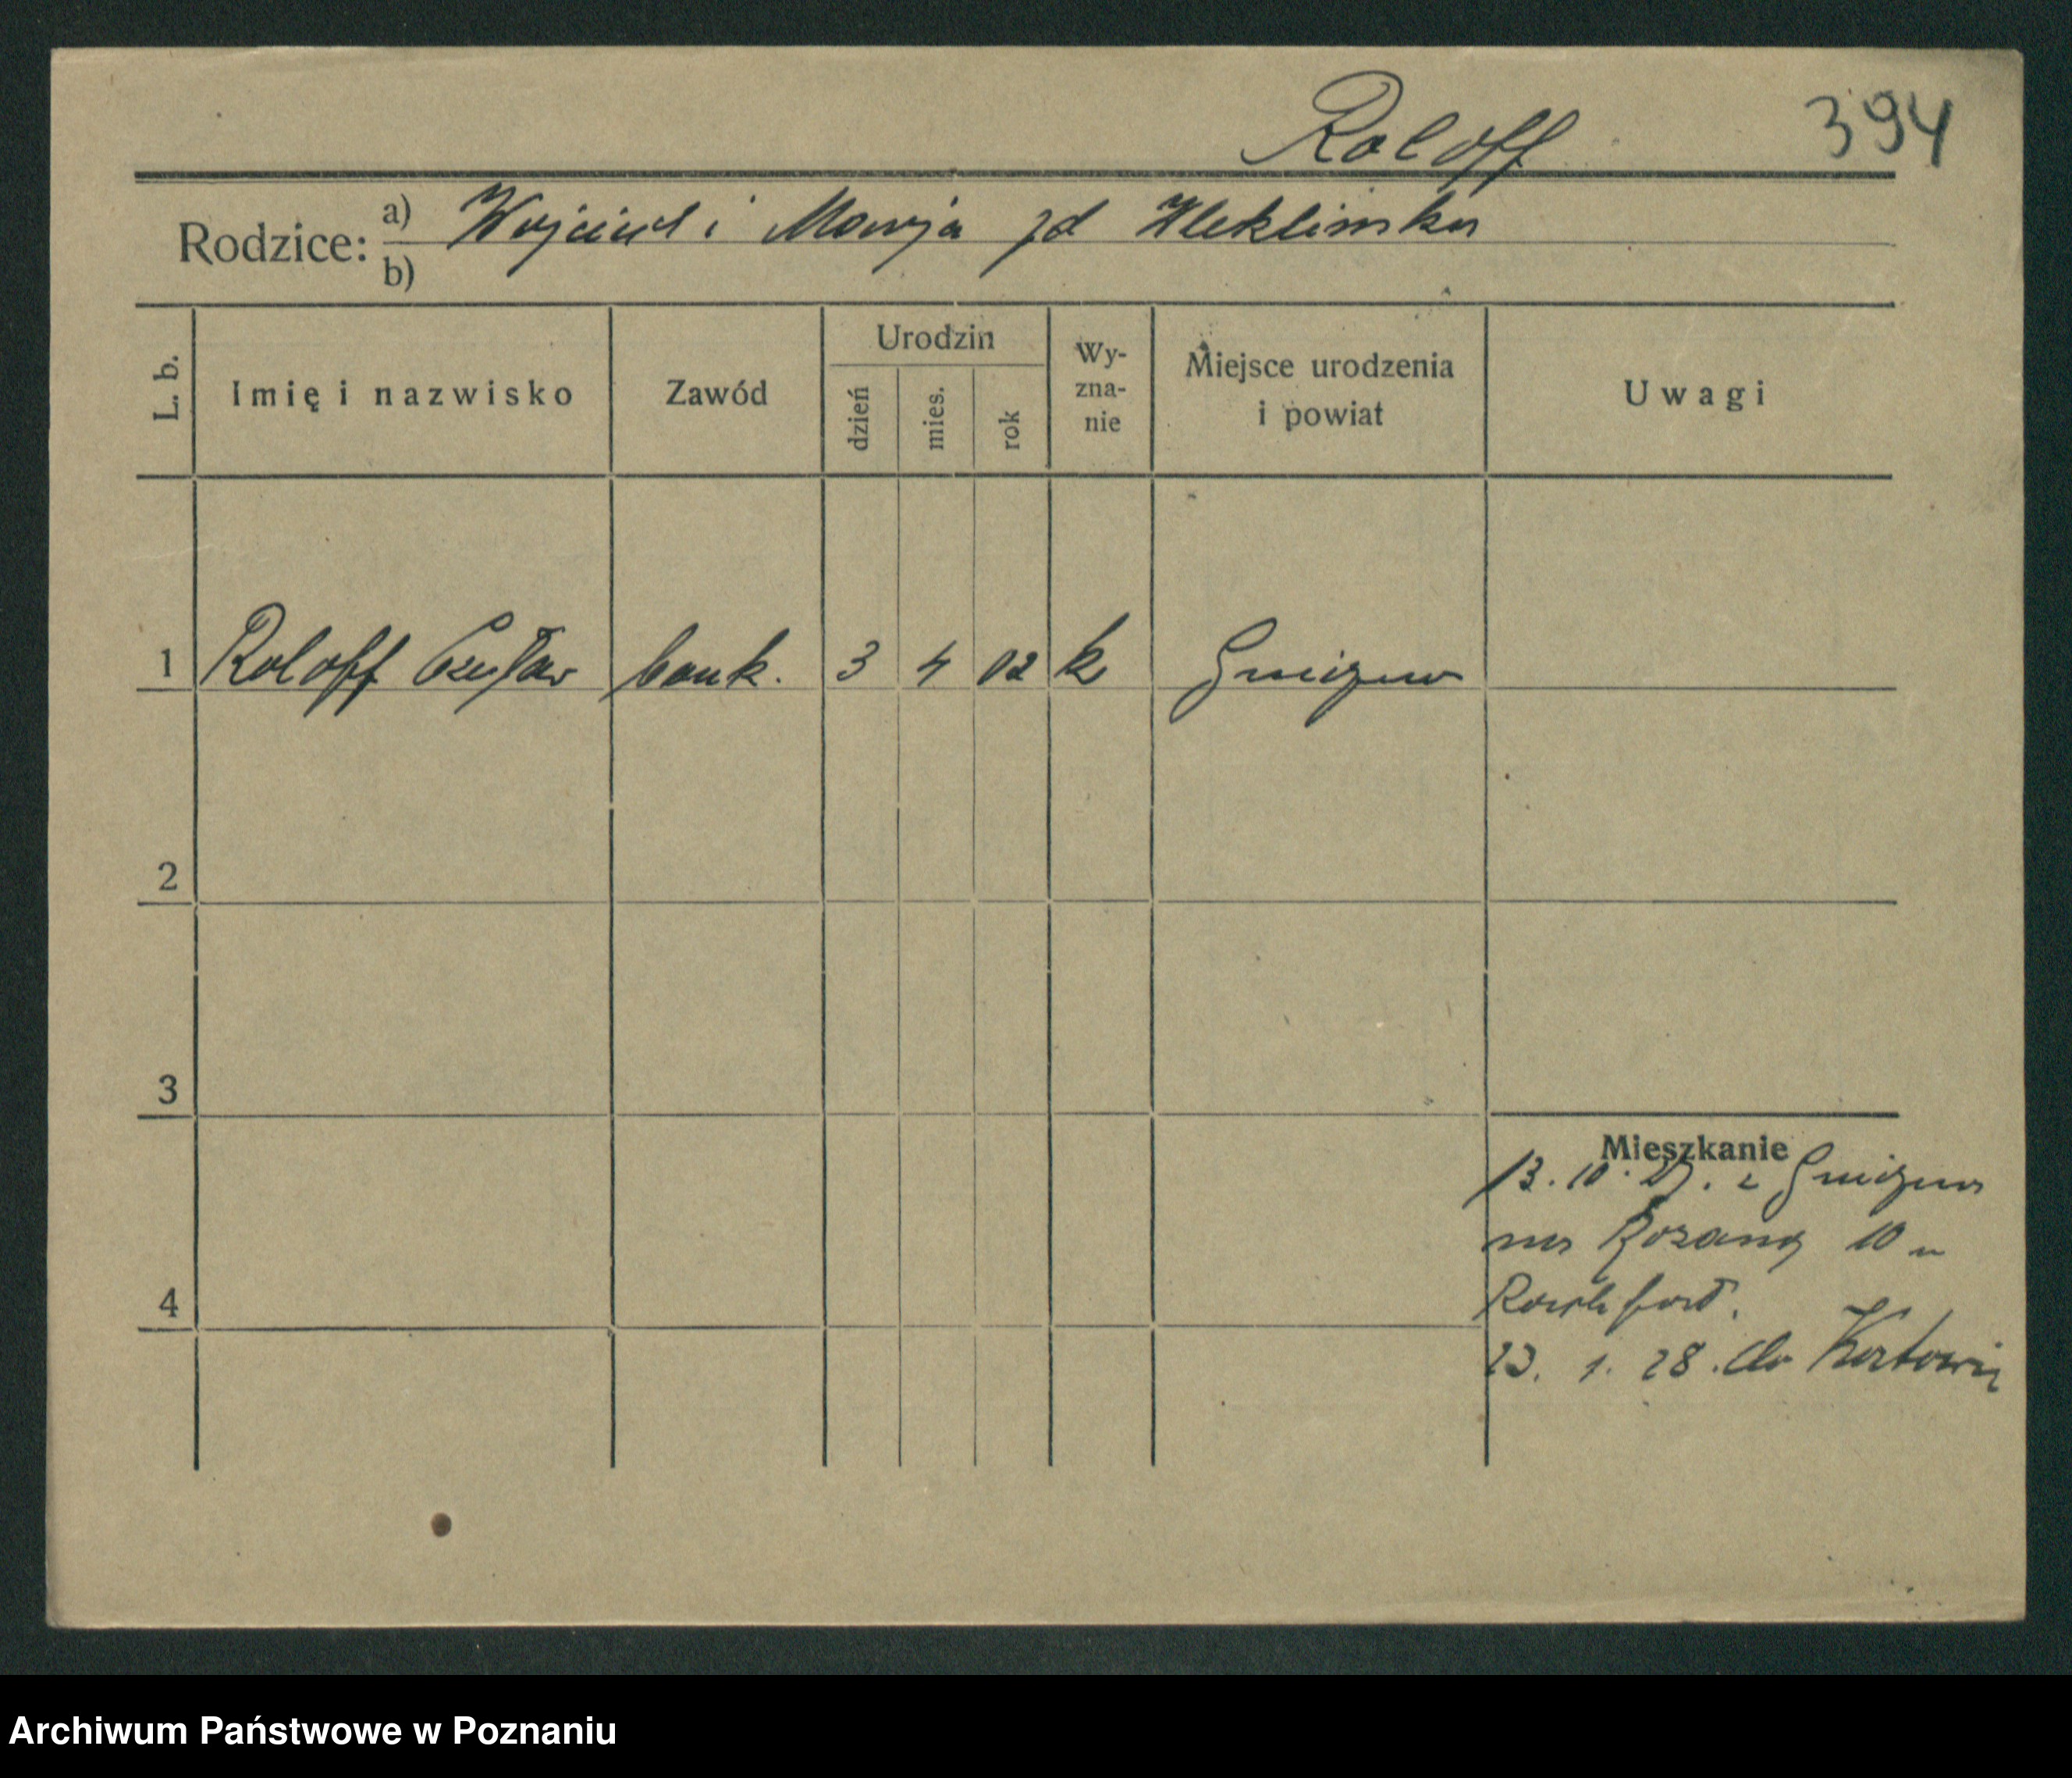 Roloff
394
Rodzice: a) Wojciech i Marja zd
b)
L. b.
Imię i nazwisko
Zawód
Urodzin
dzień
mies.
rok
Wy-
zna-
nie
Miejsce urodzenia
i powiat
Uwagi
1 Roloff Czesław bank. 3 4 02 k Gniezno
2
3
4
Mieszkanie
13. 10. 27. z Gniezna
na 10 u
23. 1. 28. do Katowic
Archiwum Państwowe w Poznaniu